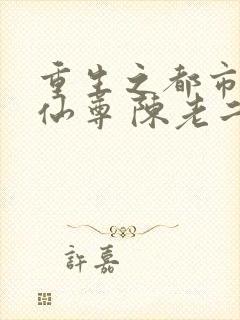 重生之都市
仙尊 陈老二
許嘉